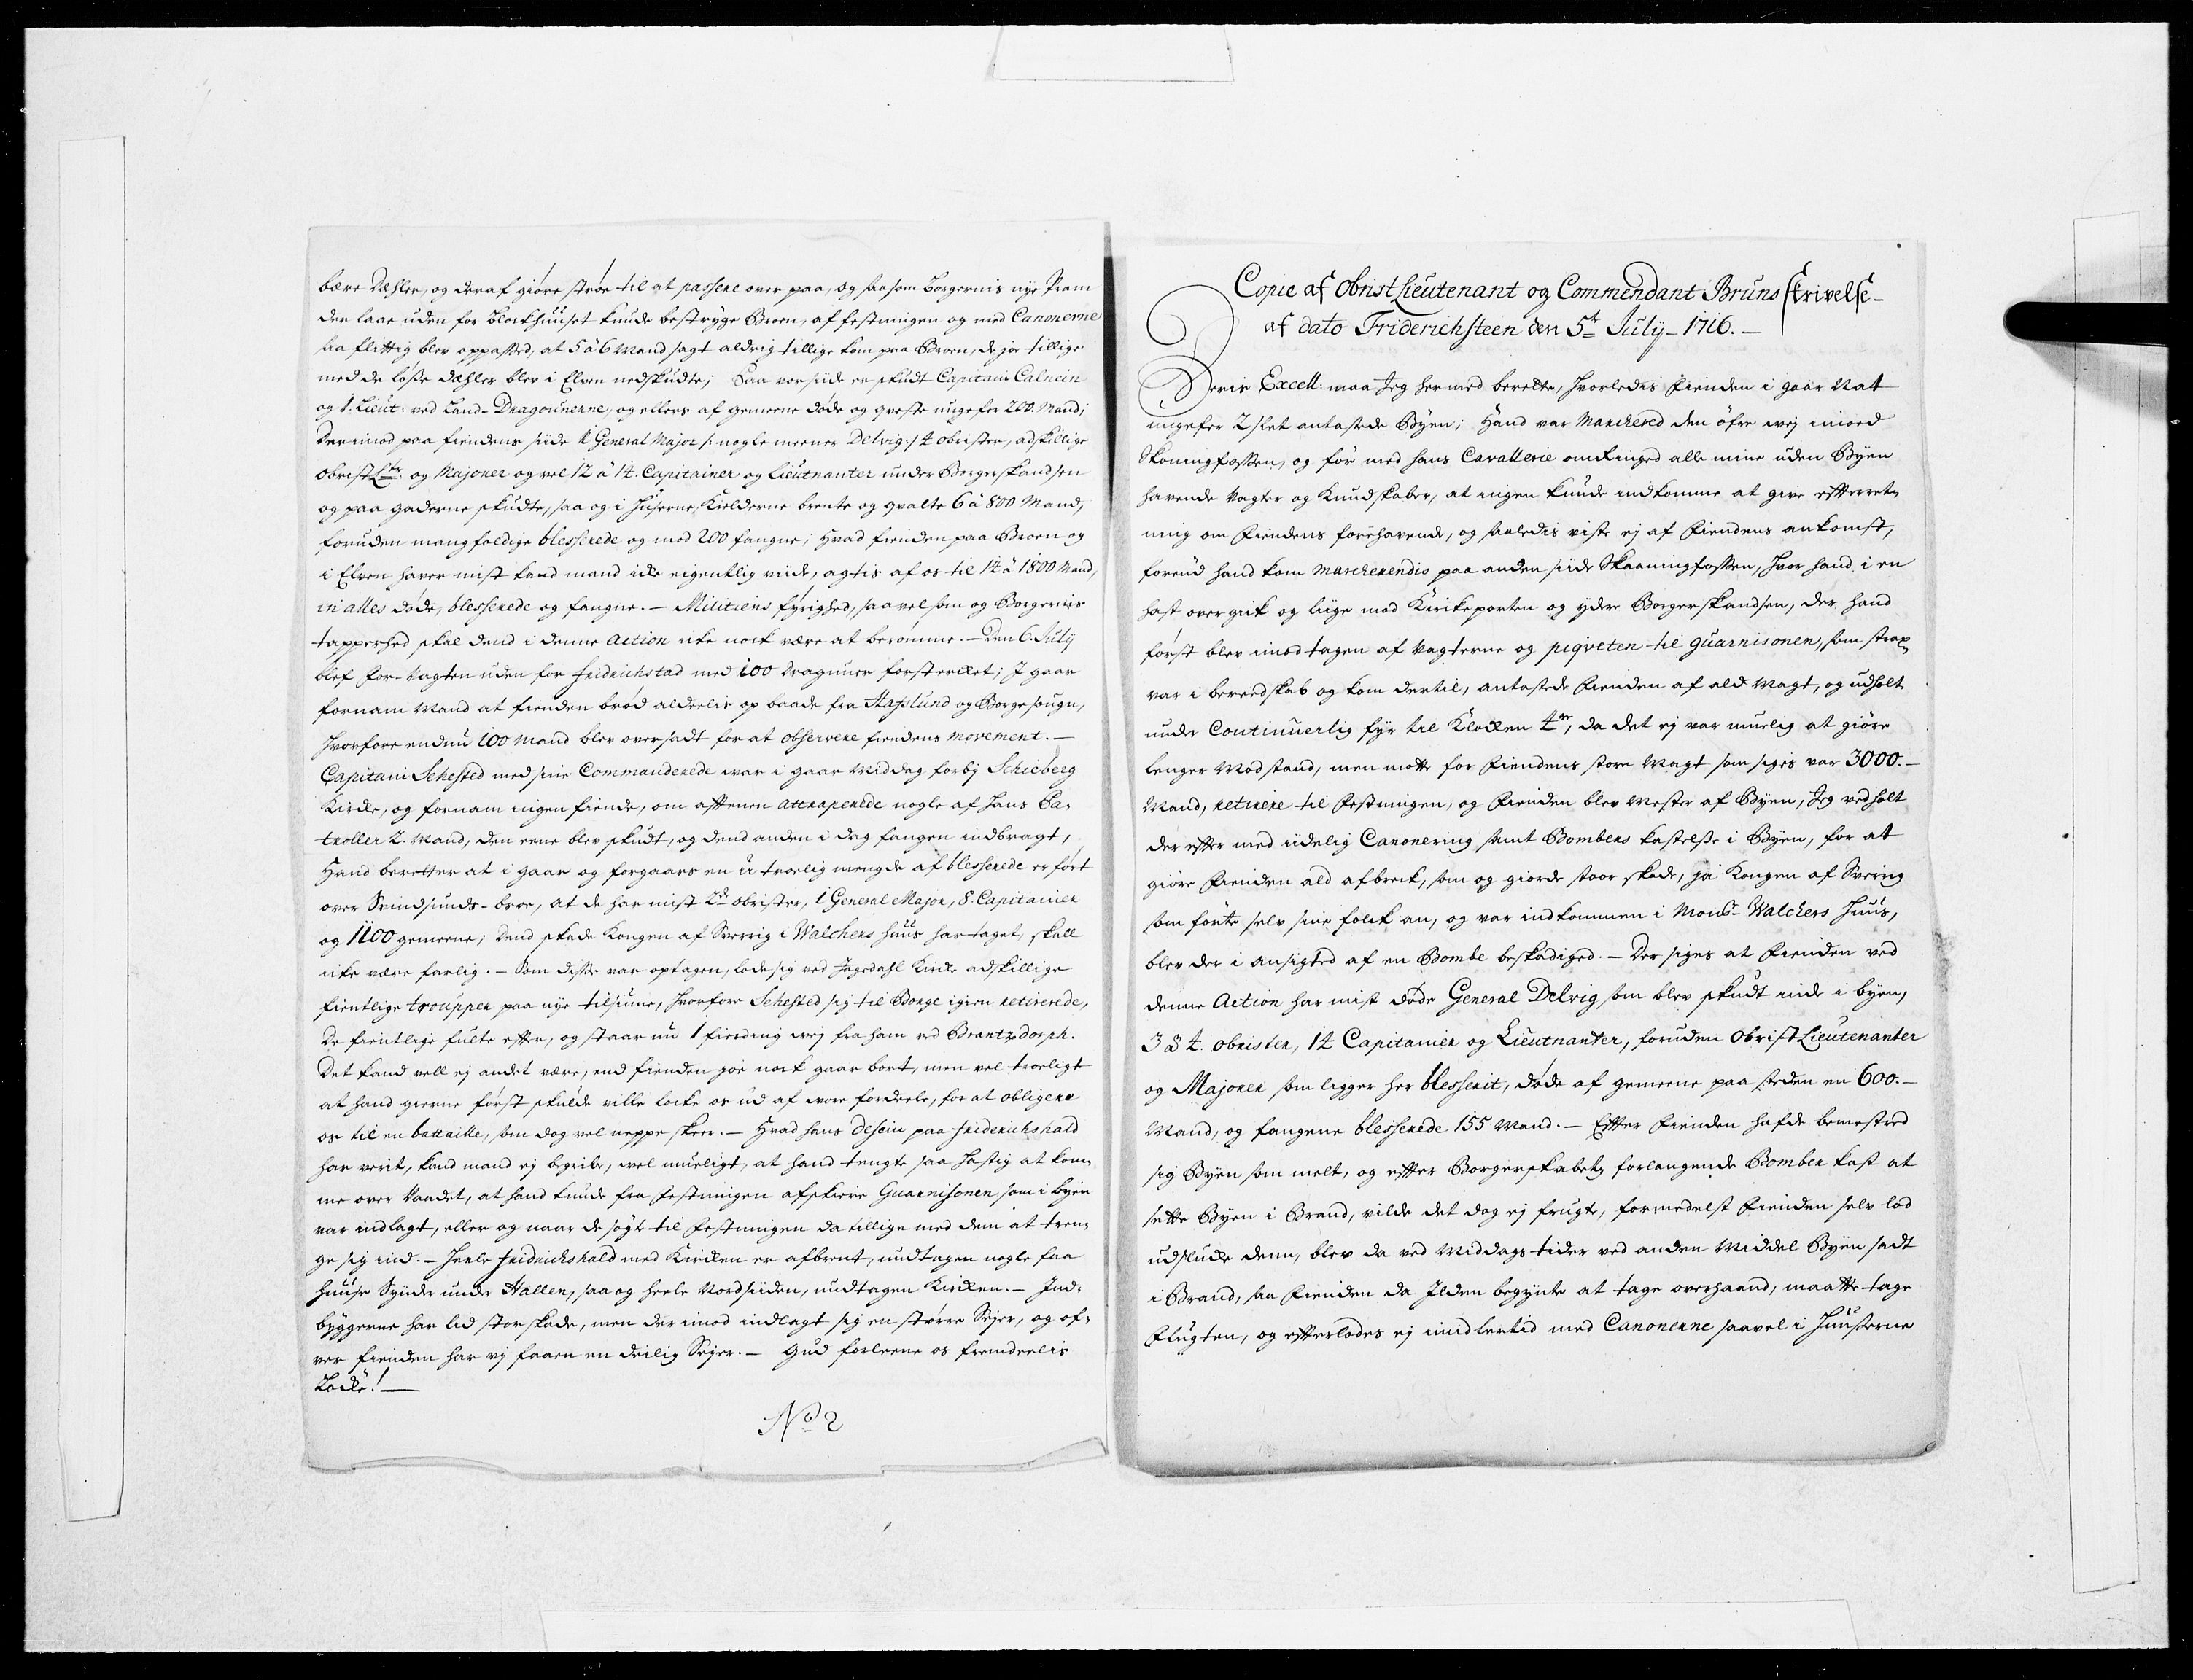 bære Dæhler, og deraf giöre ströe til at passere over paa, og saasom Borgernis nye Pram
der laae uden for Blockhuuset kunde bestryge Broen, af festningen og med Canonerne
saa flittig blev oppasset, at 5 à 6 Mand sagt aldrig tillige kom paa Broen, de jo tillige
med de löse dæhler blev i Elven nedskudte; Paa vor siide er skudt Capitain Calnein
og 1. Lieut: ved Land-Dragounerne, og ellers af gemeene döde og qveste ungefer 200. Mand;
Derimod paa fiendens siide 1 General Major /: nogle meener Delvig :/ 4 obrister, adskillige
obristLtr. og Majorer og vel 12 à 14. Capitainer og Lieutnanter under Borgerskandsen
og paa gaderne skudte, saa og i Huuserne, Kielderne brente og qvalte 6 à 800 Mand,
foruden mangfoldige blesserede og mod 200 fangne; Hvad fienden paa Broen og
i Elven haver mist kand mand icke eigentlig viide, agtis af os til 14 à 1800 Mand,
in alles döde, blesserede og fangne. – Militiens fyrighed, saavel som og Borgernis
tapperhed skal dend i denne Action icke nock være at berömme. – Den 6. July
blef for-vagten uden for Fridrichstad med 100 Dragouner forsterket; I gaar
fornam Mand at fienden bröd aldeelis op baade fra Hafslund og Borge sougn,
hvorfore endnu 100 Mand blev oversadt for at observere fiendens movement. –
Capitain Sehested med sine Commanderede var i gaar Middag forbj Schieberg
Kircke, og fornam ingen fiende, om afftenen attraperede nogle af hans Pa-
troller 2. Mand, den eene blev skudt, og dend anden i dag fangen indbragt,
Hand beretter at i gaar og forgaars en utroelig mengde af blesserede er fört
over Svindsunds-broe, at de har mist 2de obrister, 1 General Major, 8. Capitainer
og 1100 gemeene; Dend skade Kongen af Sverrig i Walchers huus har taget, skall
icke være farlig. – Som diste var optagen, lode sig ved Ingedahl Kircke adskillige
fientlige troupper paa nye tilsiune, hvorfore Sehested sig til Borge igien retirerede,
De fientlige fulte effter, og staar nu 1 fierding vej fra ham ved Brantzdorph.
Det kand vell ej andet være, end fienden joe nock gaar bort, men vel troeligt
at hand gierne först skulde ville locke os ud af vore fordeele, for at obligere
os til en battaille, som dog vel neppe skeer. – Hvad hans desein paa Friderichshald
har verit, kand mand ej begribe, vel mueligt, at hand tengte saa hastig at kom-
me over Vandet, at hand kunde fra festningen afskiere Guarnisonen som i byen
var indlagt, eller og naar de sögt til festningen da tillige med dem at tren-
ge sig ind. – Heele Fridrichshald med Kircken er afbrent, undtagen nogle faa
Huuse Synder under Hallen, saa og heele Nordsiiden, undtagen Kircken. – Ind-
byggerne har lid stor skade, men derimod indlagt sig en större Sejer, og of-
ver fienden har vj faaen en deilig Sejer. – Gud forleene os fremdeelis
Löcke! –
No 2
Copie af Obrist Lieutenant og Commendant Bruns skrivelse –
af dato Friderichsteen den 5t July – 1716. –
Deris Excell: maa Jeg hermed berette, hvorledis Fienden i gaar Nat
ungefer 2 slet antastede Byen; Hand var Marchered den öfre vej imoed
Skoningfossen, og för med hans Cavallerie omringed alle mine uden Byen
havende Vagter og Kundskaber, at ingen kunde indkomme at give effterret-
ning om Fiendens forehavende, og saaledis viste ej af Fiendens ankomst,
forend hand kom marcherendis paa anden siide Skaaningfossen, hvor hand i en
hast overgick og liige mod Kirckeporten og ydere Borgerskandsen, der hand
först blev imodtagen af Vagterne og piqveten til guarnisonen, som strax
var i beredskab og kom dertil, antastede Fienden af ald Magt, og udholt
under Continuerlig fyr til Klocken 4re, da det ej var muelig at giöre
lenger Modstand, men motte for Fiendens store Magt som siges var 3000. –
Mand, retirere til Festningen, og Fienden blev Mester af Byen, Jeg vedholt
der effter med iidelig Canonering samt Bombers kastelse i Byen, for at
giöre Fienden ald afbreck, som og giorde stoor skade, ja Kongen af Sverrig
som förte selv sine folck an, og var indkommen i Monsr. Walchers Huus,
blev der i ansigted af en Bombe beskadiged. – Der siges at Fienden ved
denne Action har mist döde General Delvig som blev skudt inde i byen,
3 à 4. obrister, 14 Capitainer og Lieutnanter, foruden Obrist Lieutenanter
og Majorer som ligger her blesserit, döde af gemeene paa steden en 600. –
Mand, og fangene blesserede 155 Mand. – Effter Fienden hafde bemestred
sig Byen som melt, og effter Borgerskabets forlangende Bomber kast at
sette Byen i Brand, vilde det dog ej frugte, formedelst Fienden selv lod
udslucke dem, blev da ved Middags tider ved anden Middel Byen sadt
i Brand, saa Fienden da Ilden begynte at tage overhaand, maatte tage
Flugten, og effterlodes ej imidlertid med Canonerne saavel i Huuserne